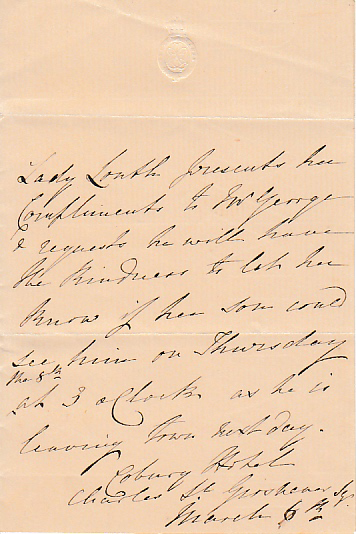 Lady Louth presents her
Compliments to Mr George
& requests he will have
the Kindness to let her
Know if her son could
see him on Thursday
the 8th
at 3 oClock as he is
leaving town next day.
Coburg Hotel
Charles St Grosvenor Sq.
March 6th